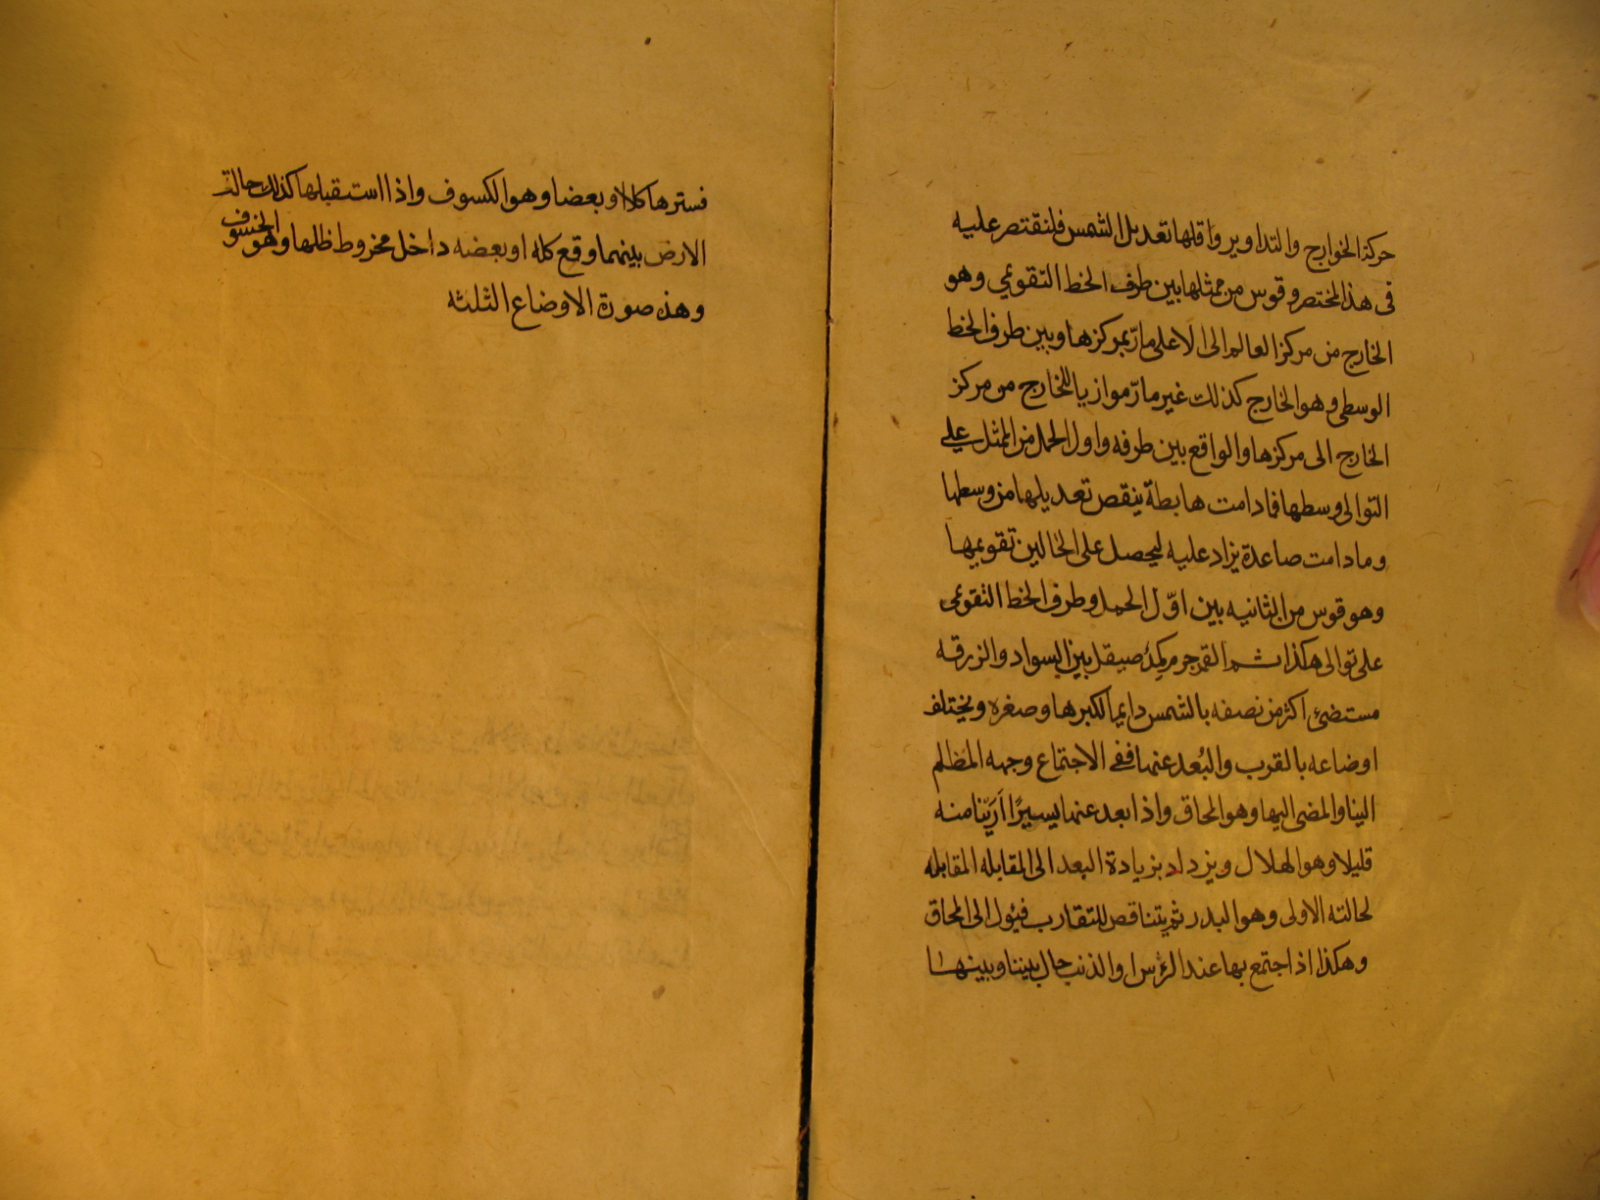 حركة الخوارج والتداوير واقلها تعديل الشمس فلنقتصر عليه
فى هذا المختصر وقوس من ممثلها بين طرف الخط التقويمي وهو
الخارج من مركز العالم الى الاعلى مارّ بمركزها وبين طرف الخط
الوسطى وهو الخارج كذلك غير مارّ موازيا للخارج من مركز
الخارج الى مركزها والواقع بين طرفه واول الحمل من الممثل على
التوالى وسطها فما دامت هابطة ينقص تعديلها من وسطها
وما دامت صاعدة يزاد عليه ليحصل على الحالين تقويمها
وهو قوس من الثانيه بين اوّل الحمل وطرف الخط التقويمى
على توالى هكذا ثم القمر جرم كمدٌ صيقل بين السواد والزرقه
مستضئ اكثر من نصفه بالشمس دايما لكبرها وصغره ويختلف
اوضاعه بالقرب والبُعد عنها ففى الاجتماع وجهه المظلم
الينا والمضى اليها وهو المحاق واذا بعد عنها يسيرًا اَرَيَنا منه
قليلا وهو الهلال ويزداد بزيادة البعد الى المقابله المقابله
لحالته الاولى وهو البدر ثم يتناقص للتقارب فيئول الى المحاق
وهكذا اذا اجتمع بها عند الرٔس او الذنب حال بيننا وبينها
فسترها كلا او بعضا وهو الكسوف واذا استقبلها كذلك حالت
الارض بينهما وقع كله او بعضه داخل مخروط ظلها وهو الخسوف
وهذه صورة الاوضاع الثلثه